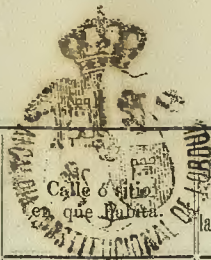 Calle ó sitio
en que habita.
la
STITUCIONAL DE